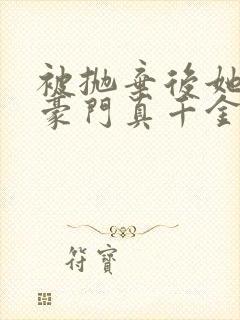 被拋棄後她
豪門真千金
符寶